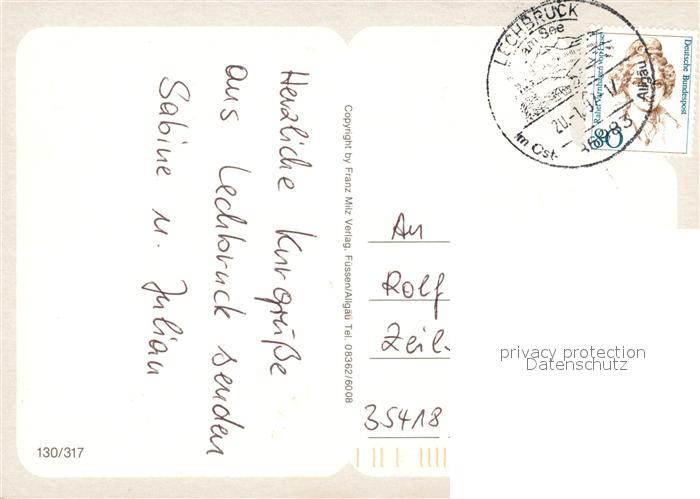 Herzliche Kurgrüße
aus Lechbruck senden
Sabine u. Julian
Copyright by Franz Milz Verlag, Füssen/Allgäu Tel. 08362/6008
130/317
LECHBRUCK
am See
Allgäu
im Ost-
86983
Deutsche Bundespost
80
An
Rolf
Zeil
35418
privacy protection
Datenschutz